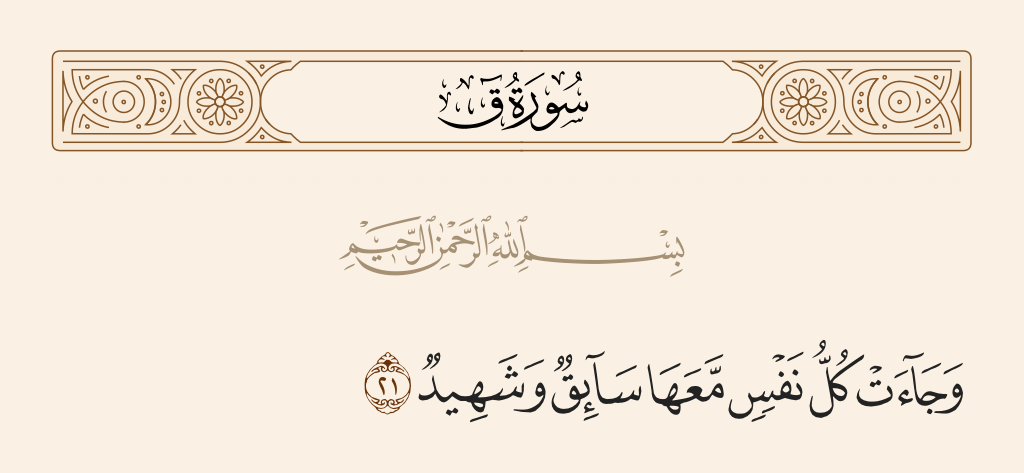 سُورَةُ قٓ
بِسْمِ ٱللَّهِ ٱلرَّحْمَٰنِ ٱلرَّحِيمِ
وَجَآءَتْ كُلُّ نَفْسٍ مَّعَهَا سَآئِقٌ وَشَهِيدٌ ٢١